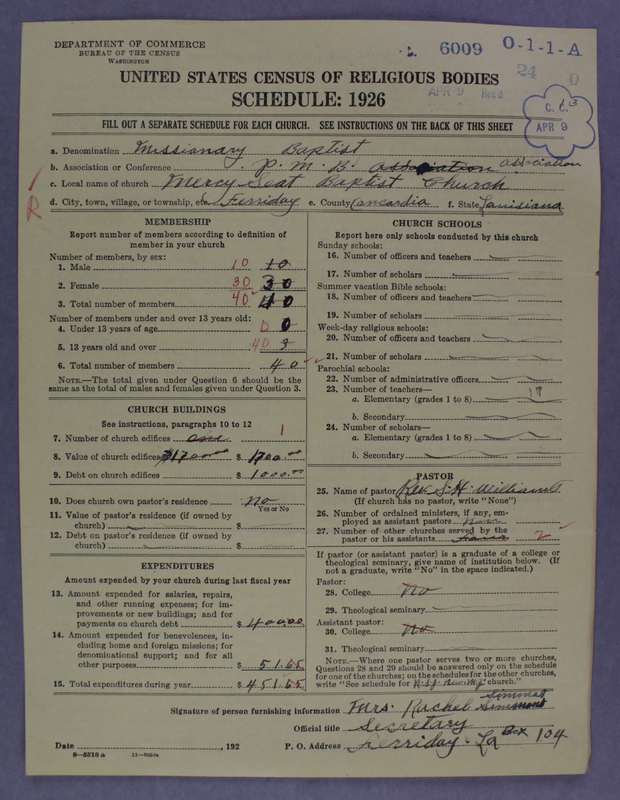 DEPARTMENT OF COMMERCE
BUREAU OF THE CENSUS
WASHINGTON
6009 O-1-1-A
24 0
APR 9 Rec'd
C. C. B
APR 9
UNITED STATES CENSUS OF RELIGIOUS BODIES
SCHEDULE: 1926
FILL OUT A SEPARATE SCHEDULE FOR EACH CHURCH. SEE INSTRUCTIONS ON THE BACK OF THIS SHEET
a. Denomination Missionary Baptist
b. Association or Conference P. M. B. association association
c. Local name of church Mercy Seat Baptist Church
R
d. City, town, village, or township, etc. Ferriday e. County Concardia f. State Louisiana
MEMBERSHIP
Report number of members according to definition of
member in your church
Number of members, by sex:
1. Male 10 10
2. Female 30 30
3. Total number of members 40 40
Number of members under and over 13 years old:
4. Under 13 years of age 0 0
5. 13 years old and over 40 3
6. Total number of members 40
NOTE.—The total given under Question 6 should be the
same as the total of males and females given under Question 3.
CHURCH BUILDINGS
See instructions, paragraphs 10 to 12
7. Number of church edifices one 1
8. Value of church edifices $1700.00 $ 1700.00
9. Debt on church edifices $ 1000.00
10. Does church own pastor's residence No
Yes or No
11. Value of pastor's residence (if owned by
church) $
12. Debt on pastor's residence (if owned by
church) $
EXPENDITURES
Amount expended by your church during last fiscal year
13. Amount expended for salaries, repairs,
and other running expenses; for im-
provements or new buildings; and for
payments on church debt $ 400.00
14. Amount expended for benevolences, in-
cluding home and foreign missions; for
denominational support; and for all
other purposes $ 51.65
15. Total expenditures during year $ 451.65
CHURCH SCHOOLS
Report here only schools conducted by this church
Sunday schools:
16. Number of officers and teachers
17. Number of scholars
Summer vacation Bible schools:
18. Number of officers and teachers
19. Number of scholars
Week-day religious schools:
20. Number of officers and teachers
21. Number of scholars
Parochial schools:
22. Number of administrative officers
23. Number of teachers—
a. Elementary (grades 1 to 8)
b. Secondary
24. Number of scholars—
a. Elementary (grades 1 to 8)
b. Secondary
PASTOR
25. Name of pastor Rev. S. H. Williams
(If church has no pastor, write "None")
26. Number of ordained ministers, if any, em-
ployed as assistant pastors
27. Number of other churches served by the
pastor or his assistants 2
If pastor (or assistant pastor) is a graduate of a college or
theological seminary, give name of institution below. (If
not a graduate, write "No" in the space indicated.)
Pastor:
28. College No
29. Theological seminary
Assistant pastor:
30. College No
31. Theological seminary
NOTE.—Where one pastor serves two or more churches,
Questions 28 and 29 should be answered only on the schedule
for one of the churches; on the schedules for the other churches,
write "See schedule for church."
Signature of person furnishing information Mrs. Rachel Simmons
Official title Secretary
Date , 192 P. O. Address Ferriday - La Box 104
8—5518 a 11—9064a